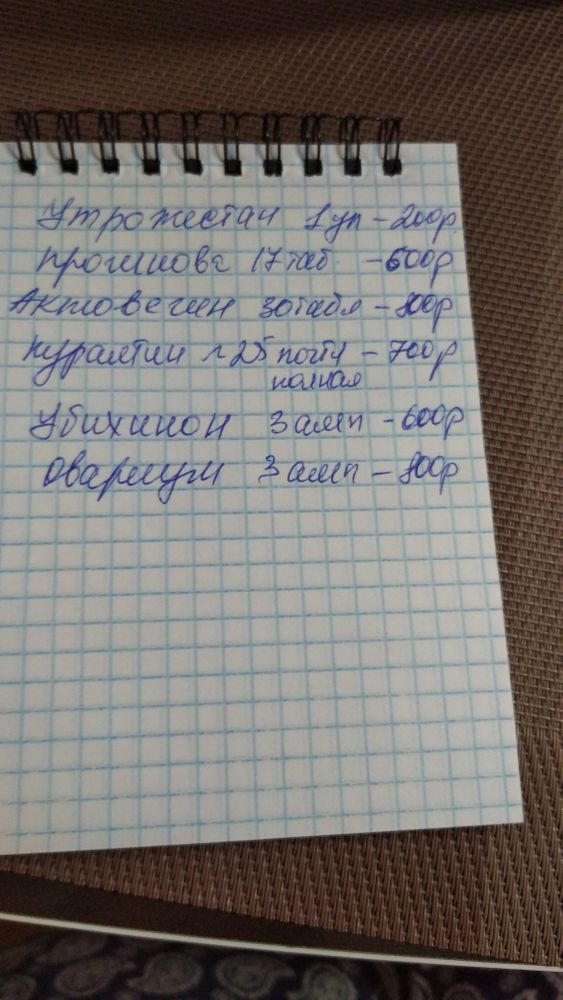 Утрожестан 1уп - 200р
Прогинова 17таб. - 600р
Актовегин 30табл - 800р
Курантил n25 почти - 700р
полная
Убихинон 3 амп - 600р
Овариум 3 амп - 800р